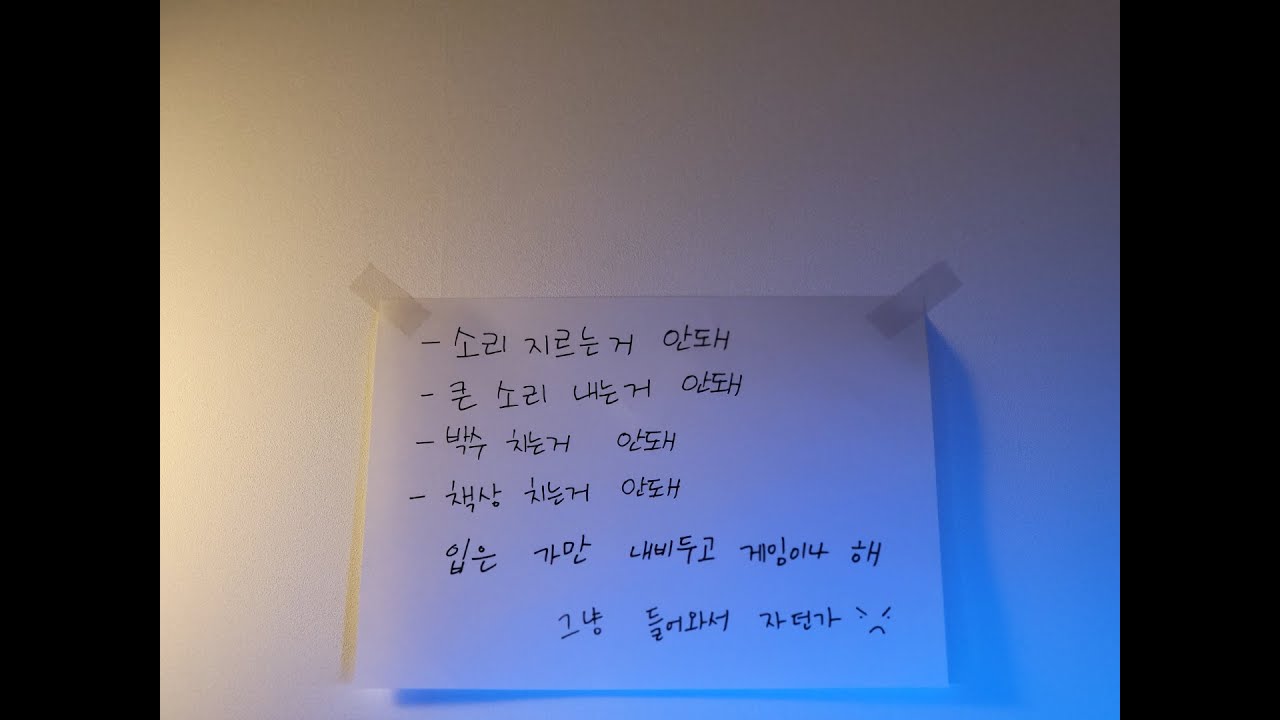 - 소리 지르는거 안돼
- 큰 소리 내는거 안돼
- 박수 치는거 안돼
- 책상 치는거 안돼
입은 가만 내비두고 게임이나 해
그냥 들어와서 자던가